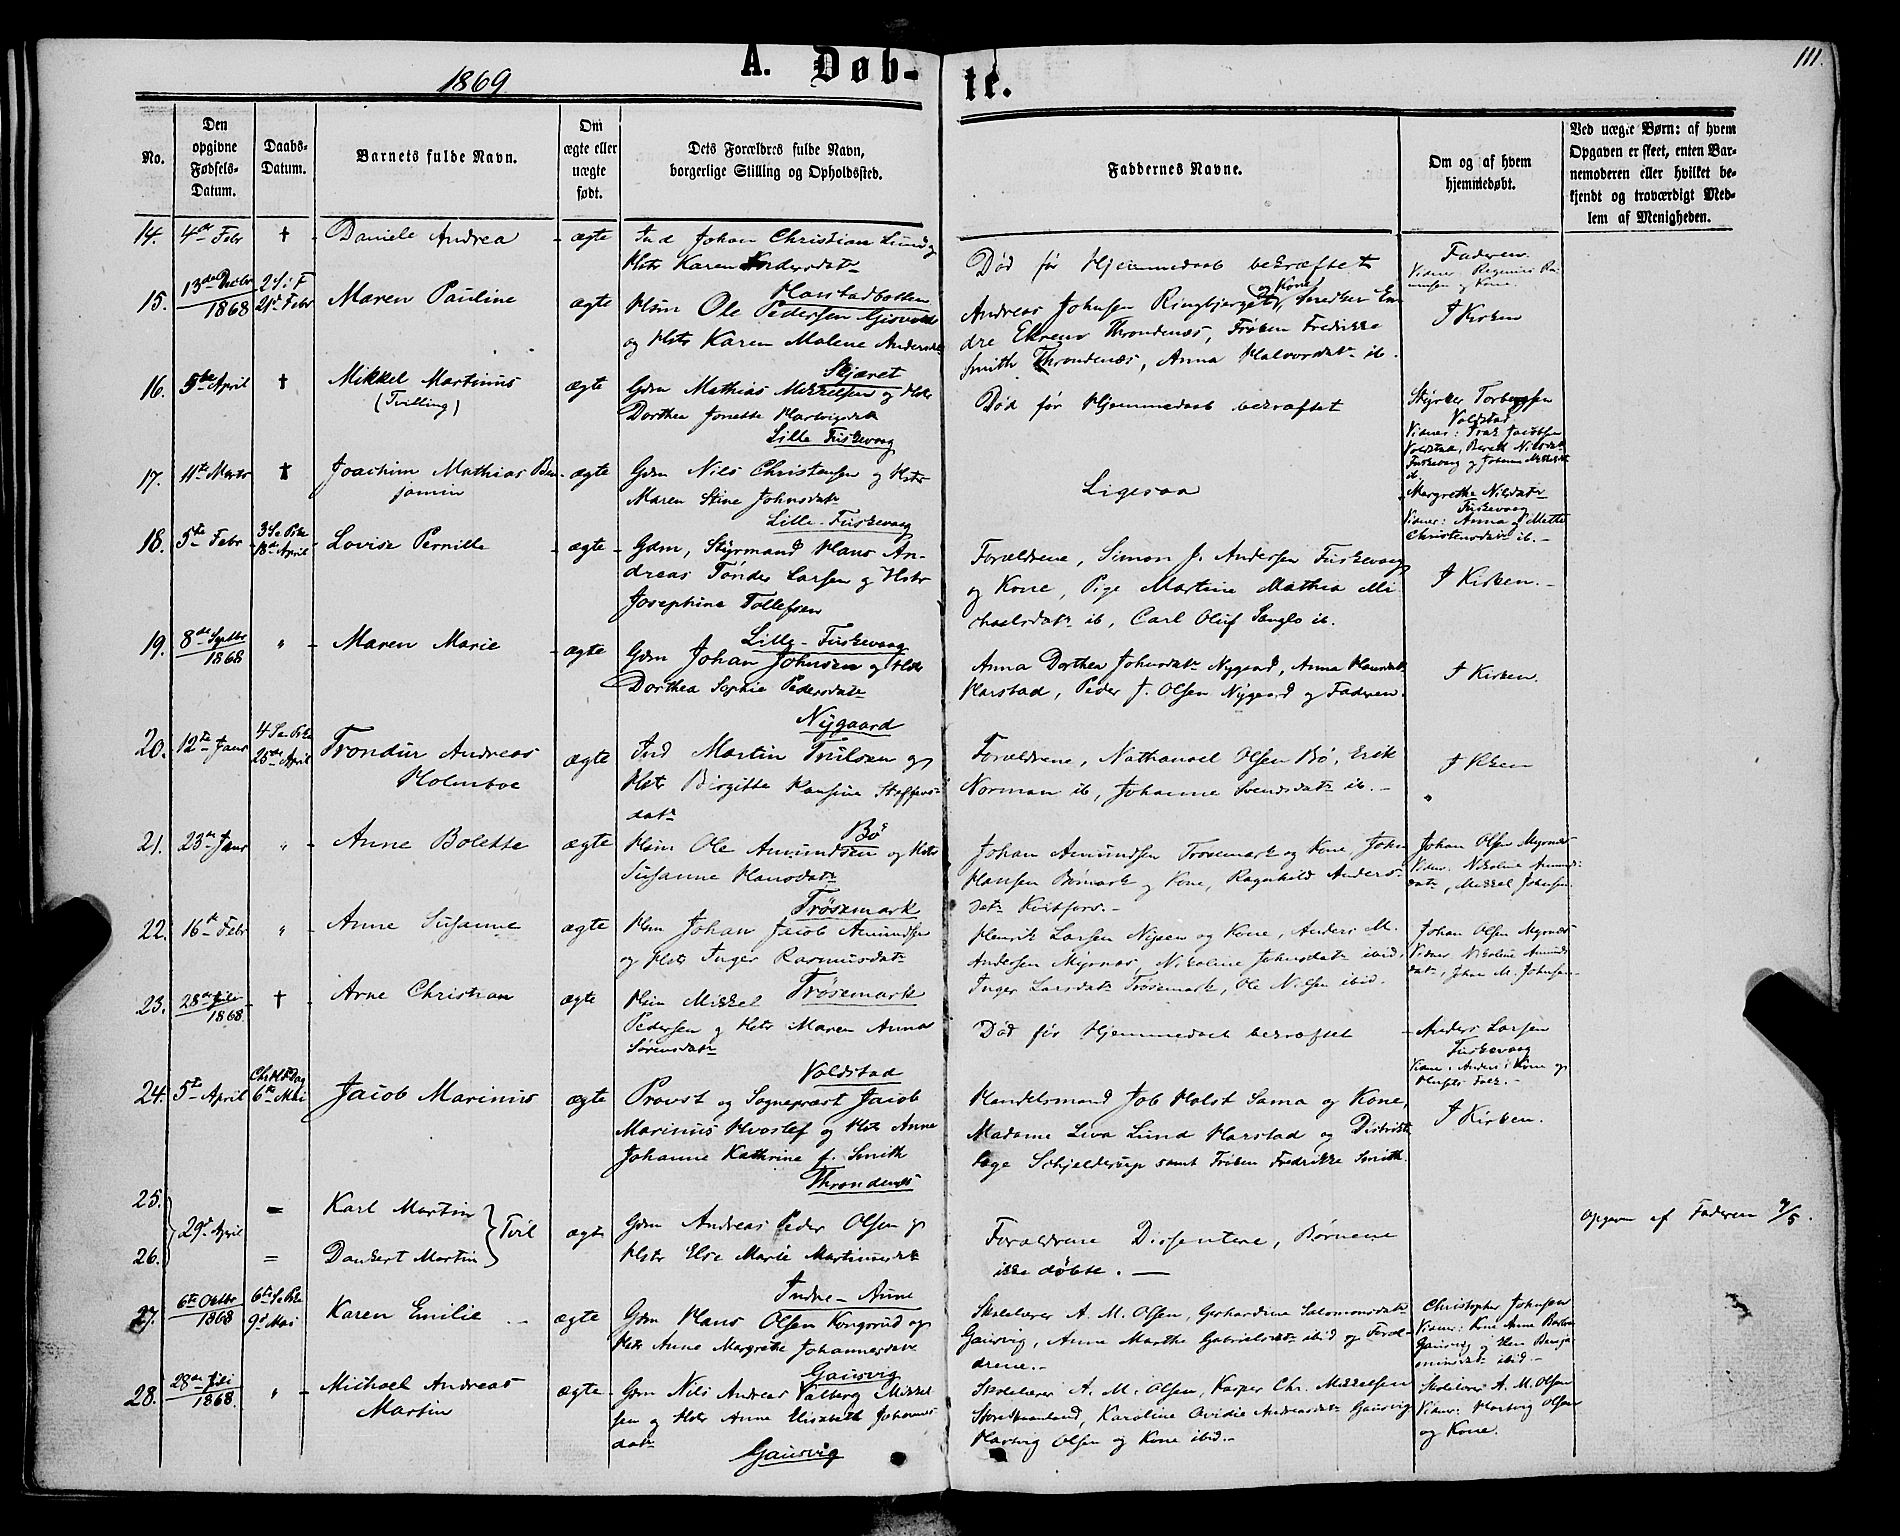 111.
1869
A. Døb-
te.
No.
Den opgivne Fødsels-Datum.
Daabs-Datum.
Barnets fulde Navn.
Om ægte eller uægte født.
Dets Forældres fulde Navn, borgerlige Stilling og Opholdssted.
Faddernes Navne.
Om og af hvem hjemmedøbt.
Ved uægte Børn: af hvem Opgaven er skeet, enten Barnemoderen eller hvilket bekjendt og troværdigt Medlem af Menigheden.
14. 4de Febr † Daniele Andrea ægte Ind Johan Christian Lund og
Hstr Karen Andersdatr
Harstadbotten
Død før Hjemmedaab bekræftet
Faderen
15. 13de Decbr 1868 2 S. i F 21de Febr Maren Pauline ægte Hsm Ole Pedersen
og Hstr Karen Malene Andersdatr
Skjæret
Andreas Johnsen Ringbjerget og Kone,
Throndenæs, Frøken Fredrikke
Smith Throndenæs, Anna Halvorsdatr ib.
I Kirken
16. 5te April † Mikkel Martinus
(Tvilling)
ægte Gdm Mathias Mikkelsen og Hstr
Dorthea Jonette Hartvigsdatr
Lille Fuskevaag
Død før Hjemmedaab bekræftet
Voldstad
17. 11te Marts † Joachim Mathias Ben-
jamin
ægte Gdm Nils Christensen og Hstr
Maren Stine Johnsdatr
Lille-Fuskevaag
Ligesaa
Margrethe Nilsdatr
Fuskevaag
Vidner: Anna og Mette
Christensdatr ib.
18. 5te Febr 3 S. e. Pske 18de April Lovise Pernille ægte Gdm, Styrmand Hans An-
dreas Tönder Larsen og Hstr
Josephine Tollefsen
Lille-Fuskevaag
Forældrene, Simon J. Andersen Fuskevaag
og Kone, Pige Martine Mathea Mi-
chaelsdatr ib, Carl Oluf ib.
I Kirken.
19. 8de Septbr 1868 " Maren Marie ægte Gdm Johan Johnsen og Hstr
Dorthea Sophie Pedersdatr
Nygaard
Anna Dorthea Johnsdatr Nygaard, Anna Hansdatr
Harstad, Peder J. Olsen Nygaard og Faderen.
I Kirken.
20. 12te Janr 4 S. e. Pske 25de April Trondur Andreas
Holmboe
ægte Ind Martin Trulsen og
Hstr Birgitte Hansine Steffens-
datr
Bö
Forældrene, Nathanael Olsen Bö, Erik
Norman ib, Johanne Svendsdatr ib.
I Kken
21. 23de Janr " Anne Bolette ægte Hsm Ole Amundsen og Hstr
Susanne Hansdatr
Trösemark
Johan Amundsen Trösemark og Kone, John
Hansen Bömark og Kone, Ragnhild Anders-
datr
Johan Olsen Myrnæs
Vidner: Nikoline Amunds-
datr, Mikkel Johnsen
22. 16de Febr " Anne Susanne ægte Hsm Johan Jacob Amundsen
og Hstr Inger Rasmusdatr
Trösemark
Henrik Larsen Nipen og Kone, Anders M.
Andersen Myrnæs, Nikoline Johnsdatr ibid,
Inger Larsdatr Trösemark, Ole Nilsen ibid.
Johan Olsen Myrnæs
Vidner Nikoline Amunds-
datr, Johan M. Johnsen
23. 28de Juli 1868 † Arne Christian ægte Hsm Mikkel
Pedersen og Hstr Maren Anna
Sörensdatr
Voldstad
Død før Hjemmedaab bekræftet
Anders Larsen
Fuskevaag
24. 5te April Chr. H. F. Dag 6te Mai Jacob Marinus ægte Provst og Sognepræst Jacob
Marinus Hvoslef og Hstr Anne
Johanne Kathrine f. Smith
Throndenæs
Handelsmand Job Holst Sama og Kone,
Madame Liva Lund Harstad og Distrikts-
læge Schjelderup samt Frøken Fredrikke Smith.
I Kirken.
25. Karl Martin
29de April Tvil ægte Gdm Andreas Peder Olsen og
26. Dankert Martin Hstr Else Marie Martinusdatr
Indre-Aune
Forældrene Dissentere, Børnene
ikke döbte.
Opgaven af Faderen 9/5.
27. 6te Octbr 1868 6te S. e. Pske 9de Mai Karen Emilie ægte Gdm Hans Olsen Kongsrud og
Hstr Anne Margrethe Johannesdatr
Gausvig
Skolelærer A. M. Olsen, Gerhardine Salomonsdatr
Gausvig, Anne Marthe Gabrielsdatr ibid og Foræl-
drene.
Christopher Johnsen
28. 28de Juli 1868 " Michael Andreas
Martin
ægte Gdm Nils Andreas Valberg Mikkel-
sen og Hstr Anne Elisabeth Johannes-
datr
Gausvig
Skolelærer A. M. Olsen, Kasper Chr. Mikkelsen
Karoline Ovidie Andreasdatr Gausvig
Hartvig Olsen og Kone ibid.
Skolelærer A. M. Olsen
Vidner: Hartvig Olsen
og Kone.